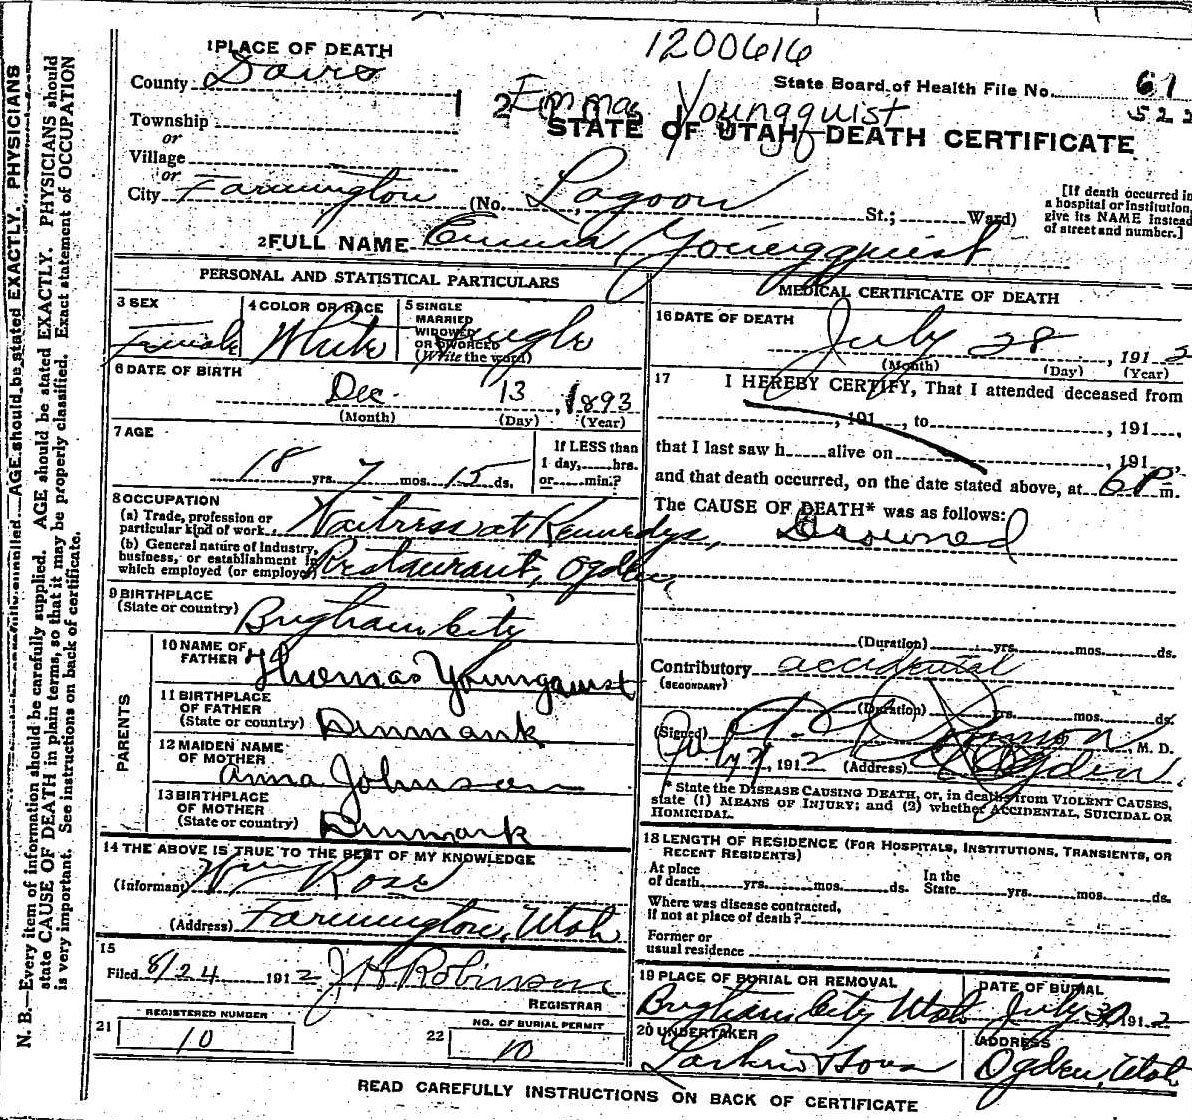 1200616
1 PLACE OF DEATH
County Davis
State Board of Health File No. 61
522
1 2 Emma Youngquist
STATE OF UTAH—DEATH CERTIFICATE
Township
or
Village
or
City Farmington (No. Lagoon St.; Ward)
[If death occurred in
a hospital or institution,
give its NAME instead
of street and number.]
2 FULL NAME Emma Youngquist
PERSONAL AND STATISTICAL PARTICULARS
3 SEX Female
4 COLOR OR RACE White
5 SINGLE
MARRIED
WIDOWED
OR DIVORCED
(Write the word)
Single
6 DATE OF BIRTH
Dec. 13, 1893
(Month) (Day) (Year)
7 AGE
18 yrs. 7 mos. 15 ds.
If LESS than
1 day, hrs.
or min.?
8 OCCUPATION
(a) Trade, profession or
particular kind of work Waitress at Kennedys,
(b) General nature of Industry,
business, or establishment in
which employed (or employer) Restaurant, Ogden,
9 BIRTHPLACE
(State or country) Brigham City
PARENTS
10 NAME OF
FATHER Thomas Youngquist
11 BIRTHPLACE
OF FATHER
(State or country) Denmark
12 MAIDEN NAME
OF MOTHER
Anna Johnson
13 BIRTHPLACE
OF MOTHER
(State or country) Denmark
14 THE ABOVE IS TRUE TO THE BEST OF MY KNOWLEDGE
(Informant) Wm Rose
(Address) Farmington, Utah
15
Filed 8/24 1912 J H Robinson
REGISTRAR
21 REGISTERED NUMBER
10
22 NO. OF BURIAL PERMIT
10
MEDICAL CERTIFICATE OF DEATH
16 DATE OF DEATH
July 28, 1912
(Month) (Day) (Year)
17 I HEREBY CERTIFY, That I attended deceased from
, 191 , to , 191 ,
that I last saw h alive on , 191 ,
and that death occurred, on the date stated above, at 6 P m.
The CAUSE OF DEATH* was as follows:
Drowned
(Duration) yrs. mos. ds.
Contributory accidental
(SECONDARY)
(Duration) yrs. mos. ds.
(Signed) , M. D.
July , 1912 (Address) Ogden.
* State the DISEASE CAUSING DEATH, or, in deaths from VIOLENT CAUSES,
state (1) MEANS OF INJURY; and (2) whether ACCIDENTAL, SUICIDAL OR
HOMICIDAL.
18 LENGTH OF RESIDENCE (FOR HOSPITALS, INSTITUTIONS, TRANSIENTS, OR
RECENT RESIDENTS)
At place
of death yrs. mos. ds.
In the
State yrs. mos. ds.
Where was disease contracted,
if not at place of death?
Former or
usual residence
19 PLACE OF BURIAL OR REMOVAL
Brigham City Utah
DATE OF BURIAL
July 30, 1912
20 UNDERTAKER
Larkin & Sons
ADDRESS
Ogden, Utah
READ CAREFULLY INSTRUCTIONS ON BACK OF CERTIFICATE
N. B.—Every item of information should be carefully supplied. AGE should be stated EXACTLY. PHYSICIANS should
state CAUSE OF DEATH in plain terms, so that it may be properly classified. Exact statement of OCCUPATION
is very important. See instructions on back of certificate.
AGE should be stated EXACTLY. PHYSICIANS